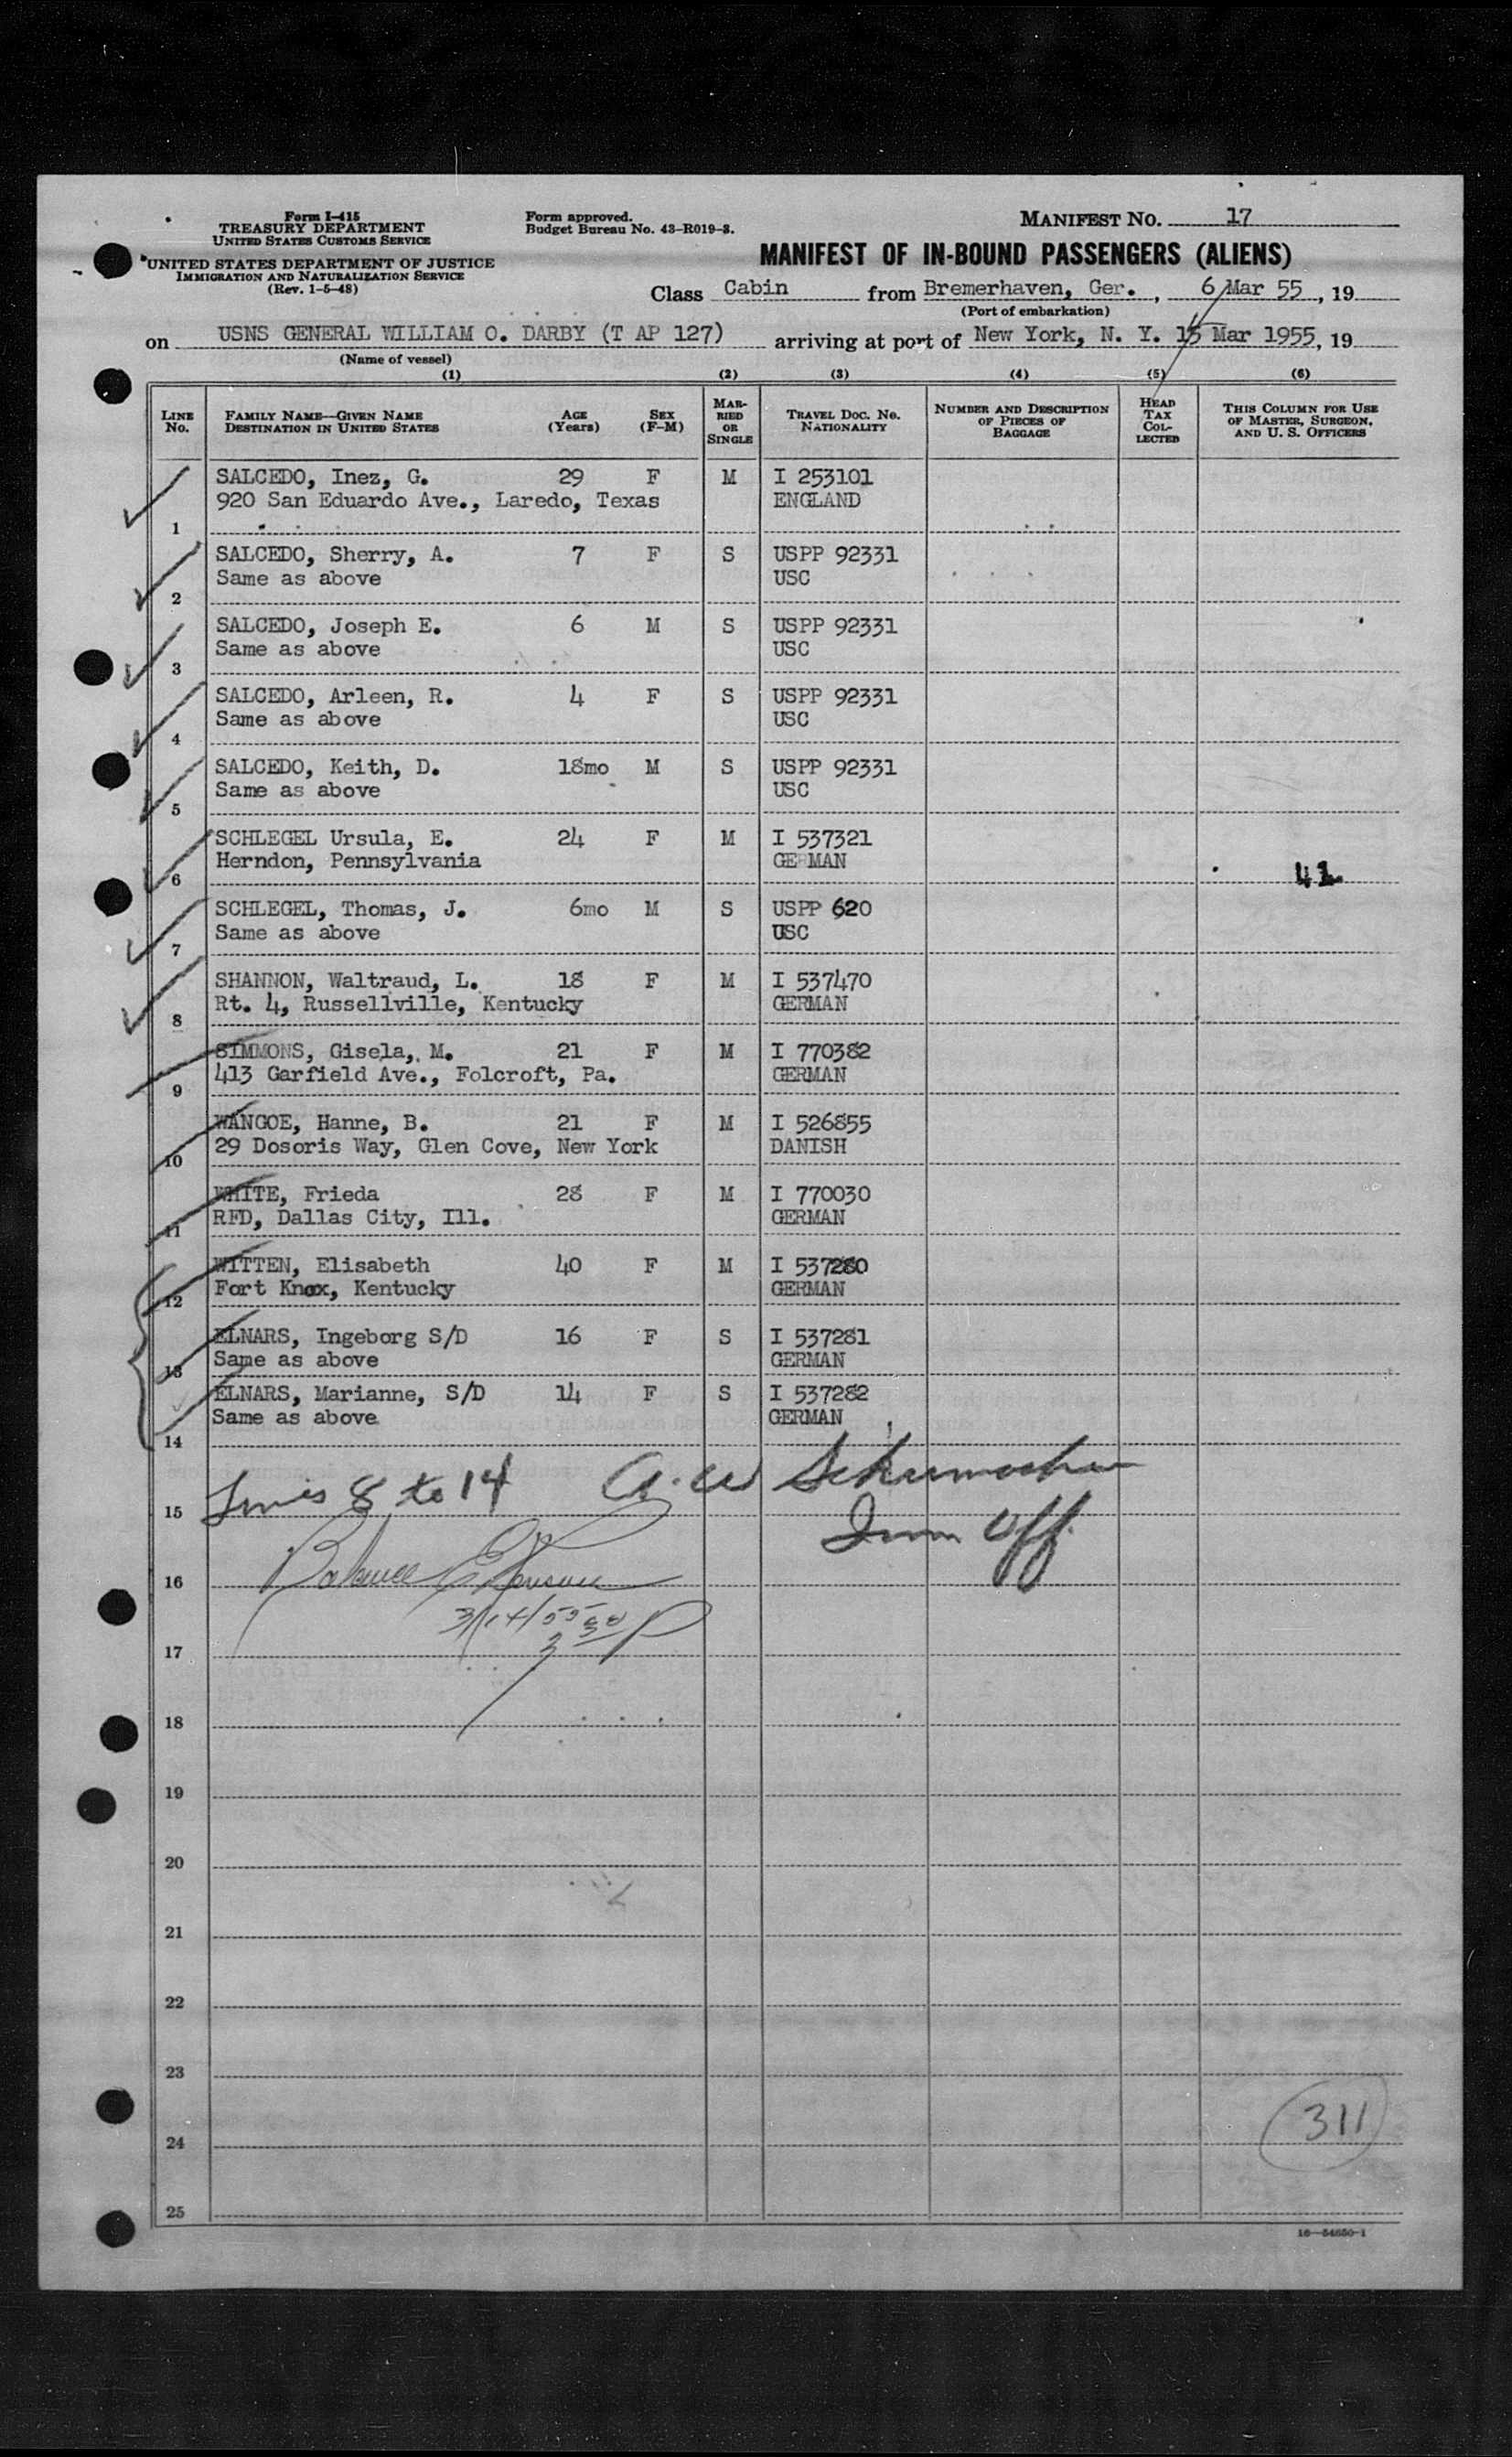 Form I-415
TREASURY DEPARTMENT
UNITED STATES CUSTOMS SERVICE
UNITED STATES DEPARTMENT OF JUSTICE
IMMIGRATION AND NATURALIZATION SERVICE
(Rev. 1-5-48)
Form approved.
Budget Bureau No. 43-R019-3.
MANIFEST NO. 17
MANIFEST OF IN-BOUND PASSENGERS (ALIENS)
Class Cabin from Bremerhaven, Ger., 6 Mar 55, 19
(Port of embarkation)
on USNS GENERAL WILLIAM O. DARBY (T AP 127) arriving at port of New York, N. Y. 15 Mar 1955, 19
(Name of vessel)
(1) (2) (3) (4) (5) (6)
LINE NO. FAMILY NAME—GIVEN NAME DESTINATION IN UNITED STATES AGE (Years) SEX (F-M) MARRIED OR SINGLE TRAVEL DOC. NO. NATIONALITY NUMBER AND DESCRIPTION OF PIECES OF BAGGAGE HEAD TAX COLLECTED THIS COLUMN FOR USE OF MASTER, SURGEON, AND U. S. OFFICERS
SALCEDO, Inez, G. 29 F M I 253101
920 San Eduardo Ave., Laredo, Texas ENGLAND
1
SALCEDO, Sherry, A. 7 F S USPP 92331
Same as above USC
2
SALCEDO, Joseph E. 6 M S USPP 92331
Same as above USC
3
SALCEDO, Arleen, R. 4 F S USPP 92331
Same as above USC
4
SALCEDO, Keith, D. 18mo M S USPP 92331
Same as above USC
5
SCHLEGEL Ursula, E. 24 F M I 537321
Herndon, Pennsylvania GERMAN
6 41
SCHLEGEL, Thomas, J. 6mo M S USPP 620
Same as above USC
7
SHANNON, Waltraud, L. 18 F M I 537470
Rt. 4, Russellville, Kentucky GERMAN
8
SIMMONS, Gisela, M. 21 F M I 770382
413 Garfield Ave., Folcroft, Pa. GERMAN
9
WANGOE, Hanne, B. 21 F M I 526855
29 Dosoris Way, Glen Cove, New York DANISH
10
WHITE, Frieda 28 F M I 770030
RFD, Dallas City, Ill. GERMAN
11
WITTEN, Elisabeth 40 F M I 537280
Fort Knox, Kentucky GERMAN
12
ELNARS, Ingeborg S/D 16 F S I 537281
Same as above GERMAN
13
ELNARS, Marianne, S/D 14 F S I 537282
Same as above GERMAN
14
Lines 8 to 14 A. W Schumacher
15
Imm Off.
Balance
16
3/14/55
17
18
19
20
21
22
23
311
24
25
16—54650-1